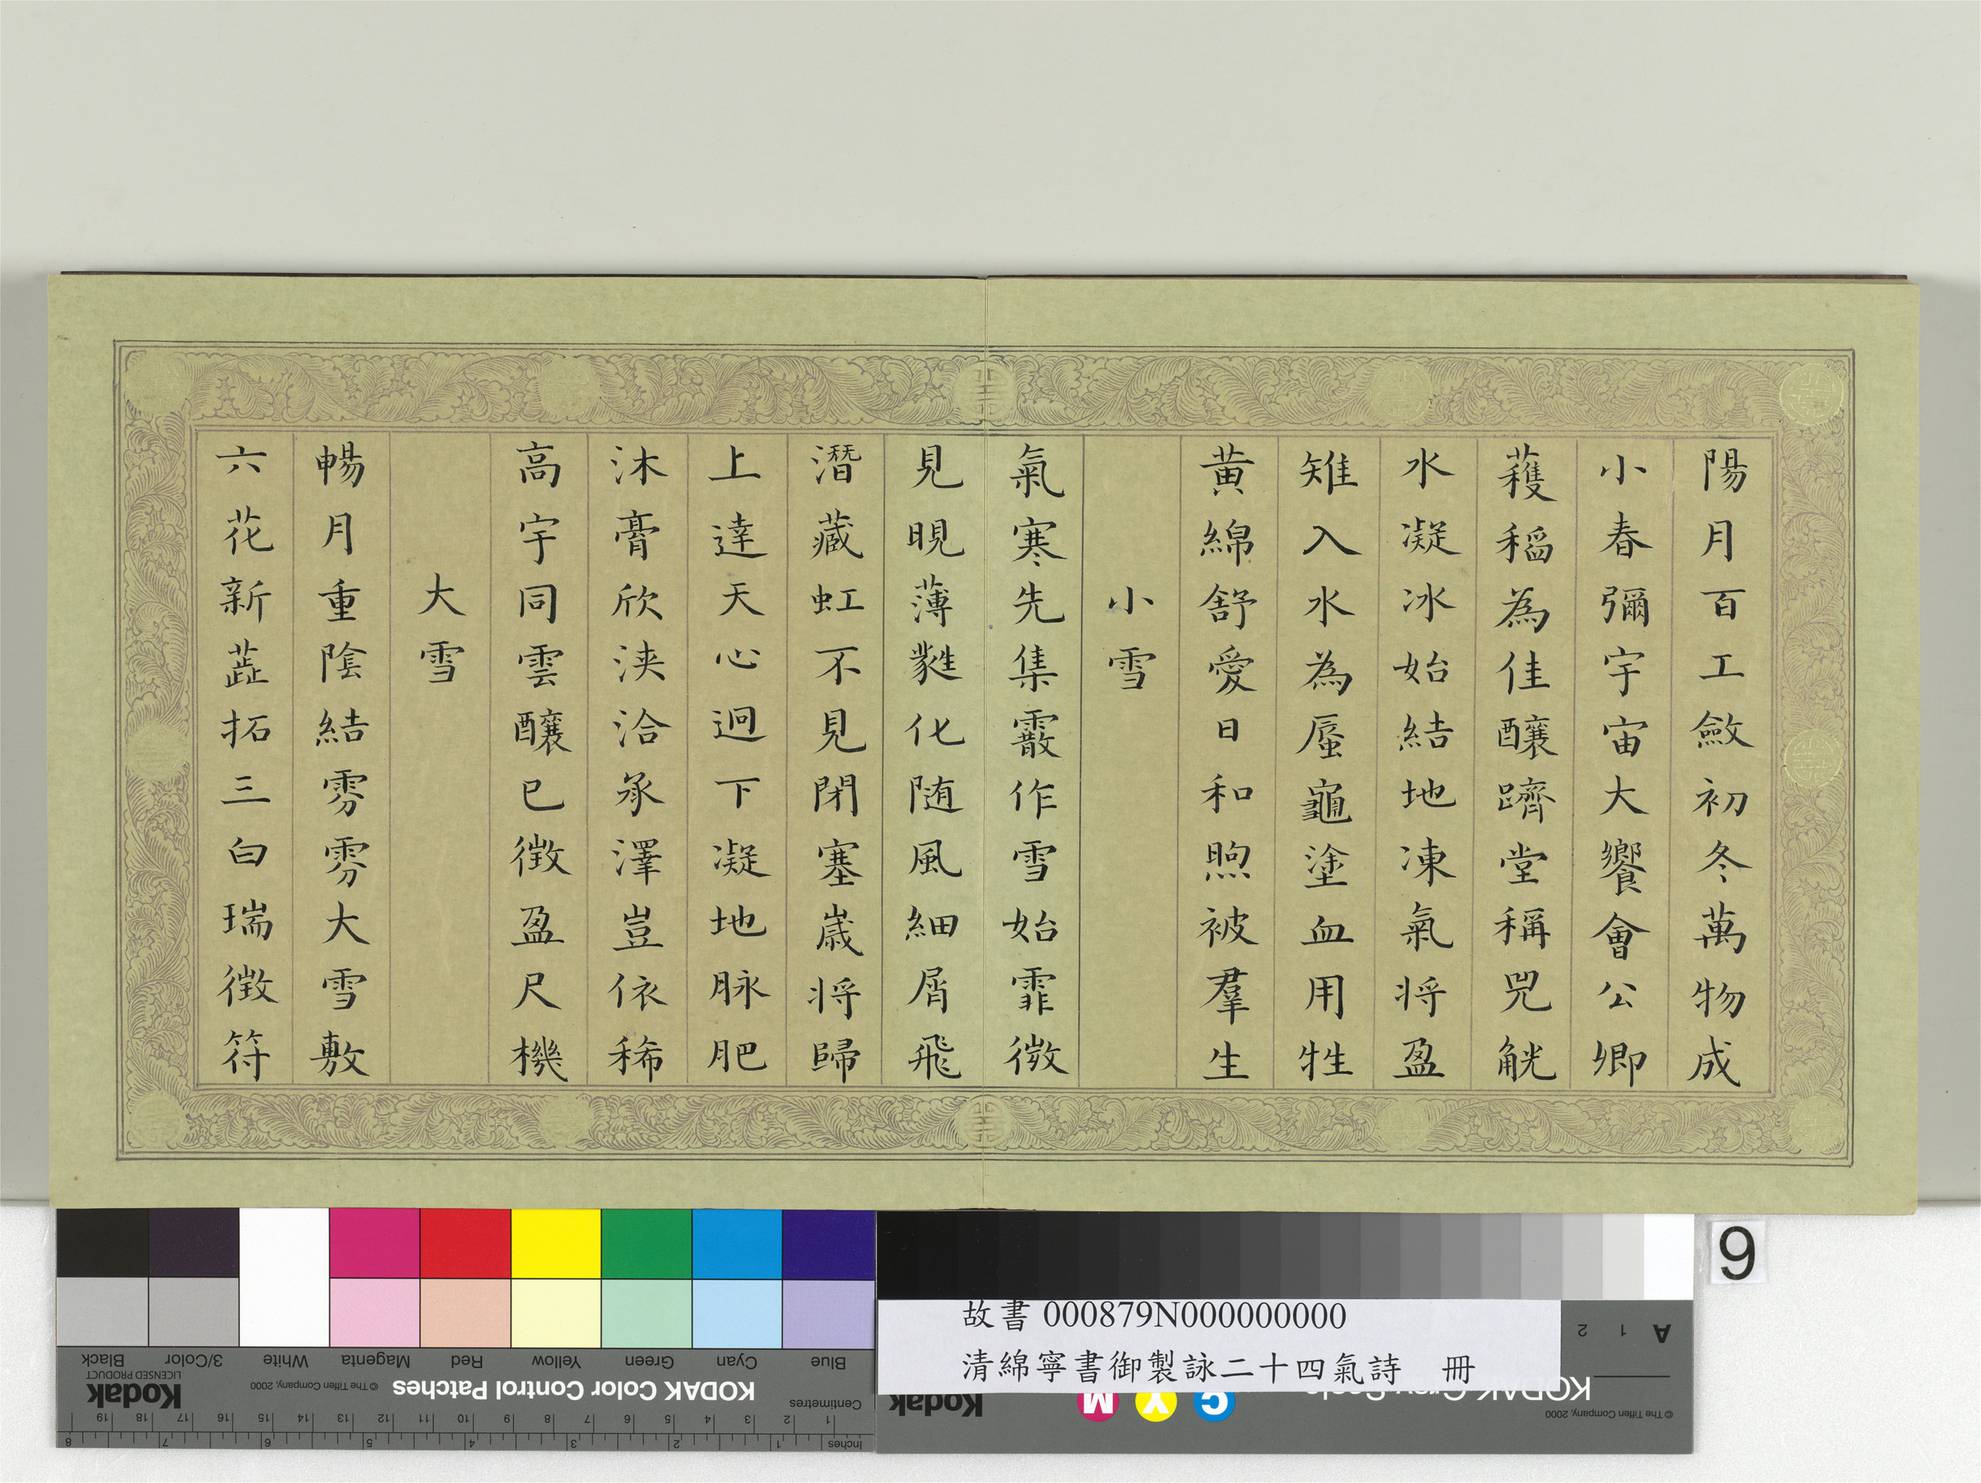 陽月百工斂初冬萬物成
小春彌宇宙大饗會公卿
蘀稻為佳釀躋堂稱兕觥
水凝冰始結地凍氣將盈
雉入水為蜃龜塗血用牲
黃綿舒愛日和煦被羣生
小雪
氣寒先集霰作雪始霏微
見晛薄蕤化随風細屑飛
潛藏虹不見閉塞歲將歸
上達天心迥下凝地脉肥
沐膏欣浹洽承澤豈依稀
高宇同雲釀已徵盈尺機
大雪
暢月重陰結雰雰大雪敷
六花新蕋拓三白瑞徵符
9
故書 000879N000000000
清綿寧書御製詠二十四氣詩 冊
Blue Cyan Green Yellow Red Magenta White 3/Color Black
KODAK Color Control Patches
© The Tiffen Company, 2000
Kodak
LICENSED PRODUCT
Centimetres
1 2 3 4 5 6 7 8 9 10 11 12 13 14 15 16 17 18 19
Inches
1 2 3 4 5 6 7 8
A 1 2
C Y M
Kodak
© The Tiffen Company, 2000